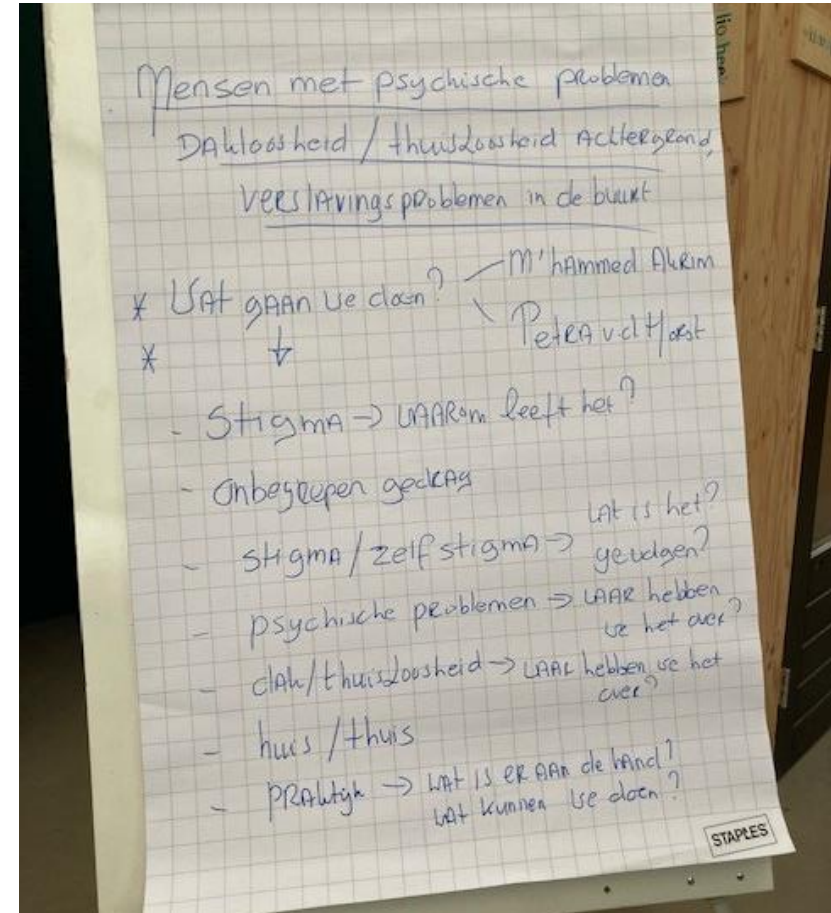 Mensen met psychische problemen
Dakloosheid / thuisloosheid Achtergrond,
verslavingsproblemen in de buurt
* Wat gaan we doen? M'hammed Akrim
* ↓ Petra v.d Horst
- Stigma → waarom leeft het?
- Onbegrepen gedrag
- stigma/zelfstigma → wat is het?
gevolgen?
- psychische problemen → waar hebben
we het over?
- dak/thuisloosheid → waar hebben we het
over?
- huis/thuis
- praktijk → wat is er aan de hand?
wat kunnen we doen?
STAPLES